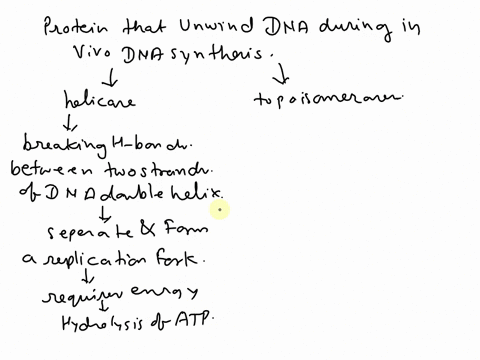 Protein that Unwind DNA during in
Vivo DNA synthesis.
helicase
topoisomerases.
breaking H-bonds
between two strands
of DNA double helix.
seperate & Form
a replication fork.
requires energy
Hydrolysis of ATP.